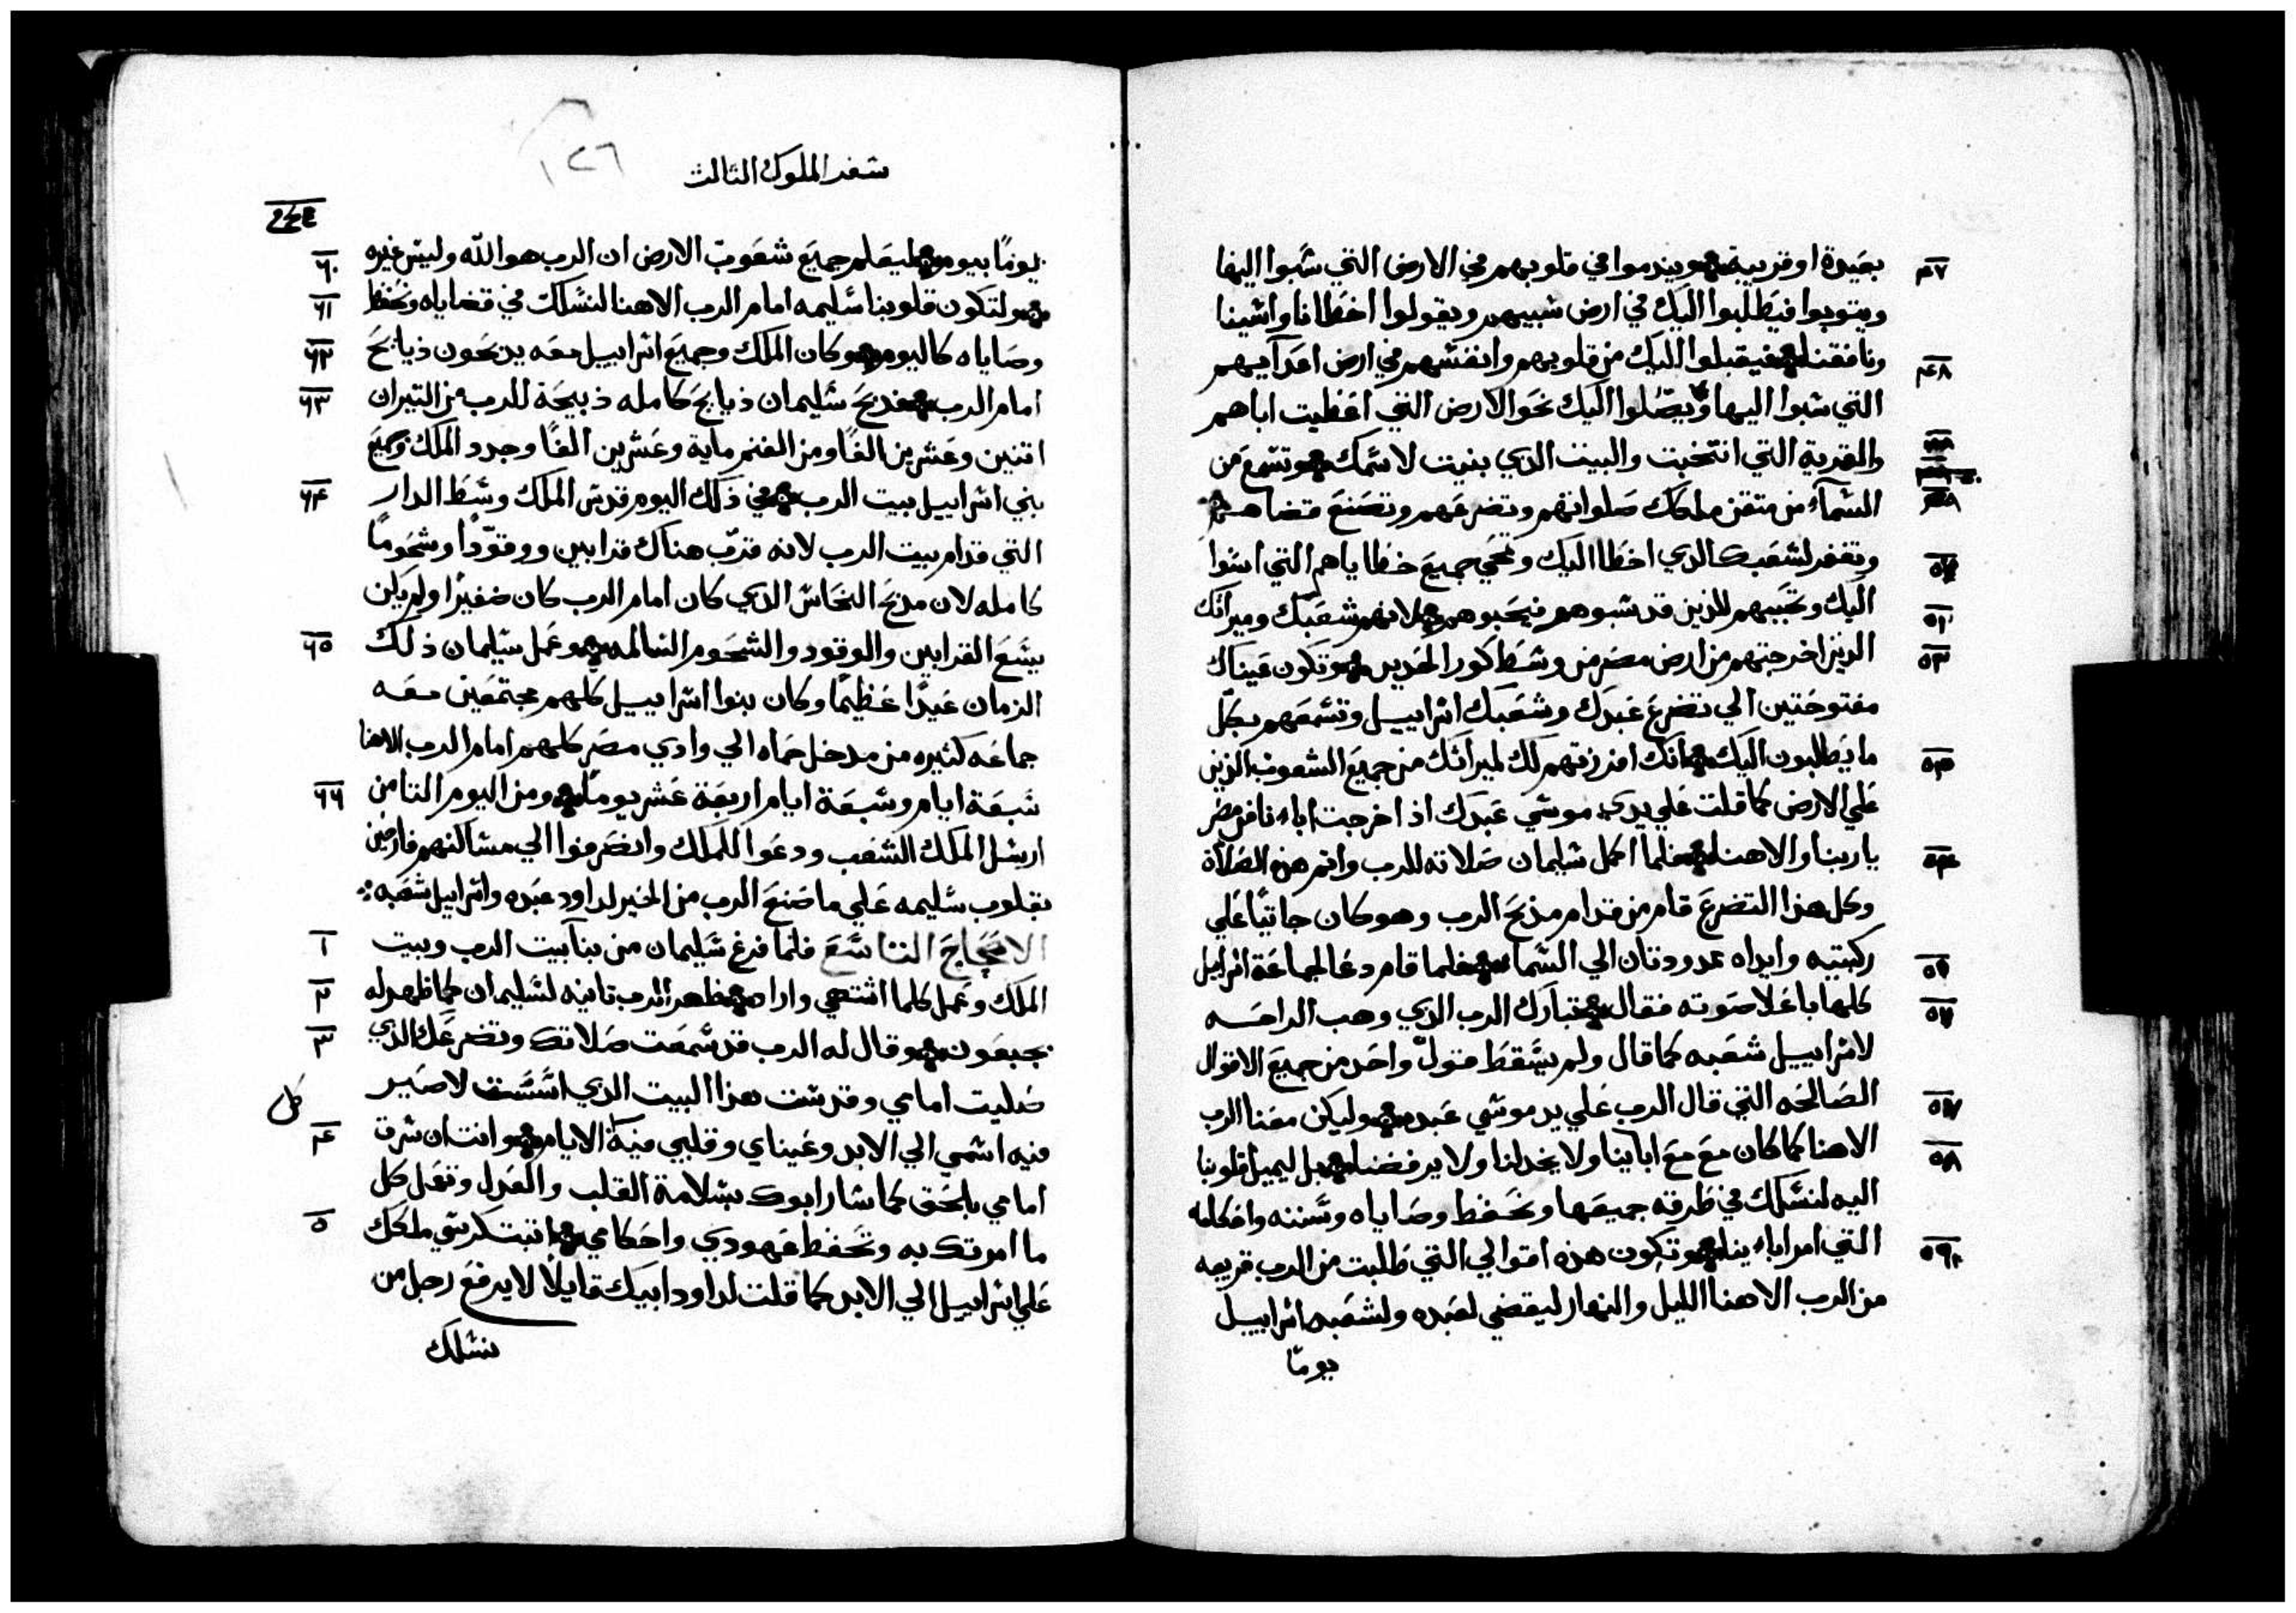 بعيدة او قريبة ويندموا في قلوبهم في الارض التي سبوا اليها
٤٧
ويتوبوا فيطلبوا اليك في ارض سبيهم ويقولوا اخطانا واسينا
ونافقنا فيقبلوا اليك من قلوبهم وانفسهم في ارض اعدآيهم
٤٨
التي سبوا اليها ويصلوا اليك نحو الارض التي اعطيت اباهم
والقرية التي انتخبت والبيت الدي بنيت لاسمك وتسمع من
السمآء من متقن ملكك صلواتهم وتضرعهم وتصنع قضاهم
وتغفر لشعبك الدي اخطا اليك وتمحي جميع خطاياهم التي اسوا
اليك وتحببهم للذين قد سبوهم فيحبوهم لانهم شعبك وميراتك
٥١
الذين اخرجتهم من ارض مصر من وسط كور الحديد وتكون عيناك
٥٢
مفتوحتين الي تضرع عبدك وشعبك اسراييل وتسمعهم بكل
ما يطلبون اليك انك افرزتهم لك لميراتك من جميع الشعوب الذين
٥٣
علي الارض كما قلت علي يدي موسي عبدك اذ اخرجت اباءنا من مصر
يا ربنا والاهنا فلما اكمل سليمان صلاته للرب واتم هذه الصلاة
٥٤
وكل هذا التضرع قام من قدام مذبح الرب وهو كان جاتيًا علي
ركبتيه وايداه ممدودتان الي السماء فلما قام دعا لجماعة اسراييل
كلها باعلا صوته فقال تبارك الرب الدي وهب الراحه
٥٦
لاسراييل شعبه كما قال ولم يسقط قول واحد من جميع الاقوال
الصالحه التي قال الرب علي يد موسي عبده وليكن معنا الرب
٥٧
الاهنا كما كان مع مع اباينا ولا يخدلنا ولا يرفضنا بل ليميل قلوبنا
٥٨
اليه لنسلك في طرقه جميعها ونحفظ وصاياه وسننه واحكامه
التي امر اباءينا وتكون هذه اقوالي التي طلبت من الرب قريبه
٥٩
من الرب الاهنا الليل والنهار ليقضي لعبده ولشعبه اسراييل
يومًا
سفر الملوك التالت
١٢٦
يومًا بيوم ليعلم جميع شعوب الارض ان الرب هو الله وليس غيره
٦٠
ولتكون قلوبنا سليمه امام الرب الاهنا لنسلك في قضاياه ونحفظ
٦١
وصاياه كاليوم وكان الملك وجميع اسراييل معه يذبحون ذبايح
٦٢
امام الرب فدبح سليمان ذبايح كامله ذبيحة للرب من التيران
٦٣
اتنين وعشرين الفًا ومن الغنم ماية وعشرين الفًا وجدد الملك وجميع
بني اسراييل بيت الرب في ذلك اليوم قدس الملك وسط الدار
٦٤
التي قدام بيت الرب لانه قدّب هناك قرابين ووقودًا وشحومًا
كامله لان مدبح النحاس الدي كان امام الرب كان صغيرًا ولم يكن
يسع القرابين والوقود والشحوم السالمه وعمل سليمان ذلك
٦٥
الزمان عيدًا عظيمًا وكان بنوا اسراييل كلهم مجتمعين معه
جماعه كتيره من مدخل حماه الي وادي مصر كلهم امام الرب الاهنا
سبعة ايام وسبعة ايام اربعة عشر يومًا ومن اليوم التامن
٦٦
ارسل الملك الشعب ودعوا للملك وانصرفوا الي مساكنهم فارحين
بقلوب سليمه علي ما صنع الرب من الخير لداود عبده واسراييل شعبه
الاصحاح التاسع فلما فرغ سليمان من بنآ بيت الرب وبيت
١
الملك وعمل كلما اشتهي واراد ظهر الرب تانيه لسليمان كما ظهر له
٢
بجبعون وقال له الرب قد سمعت صلاتك وتضرعك الدي
٣
صليت امامي وقدست هذا البيت الدي اسست لاصير
كل
فيه اسمي الي الابد وعيناي وقلبي فيه الايام وانت ان سرت
٤
امامي بالحق كما سار ابوك بسلامة القلب والعدل وتعمل كل
ما امرتك به وتحفظ عهودي واحكامي اتبت كرسي ملكك
٥
علي اسراييل الي الابد كما قلت لداود ابيك قايلًا لا يرفع رجل من
نسلك